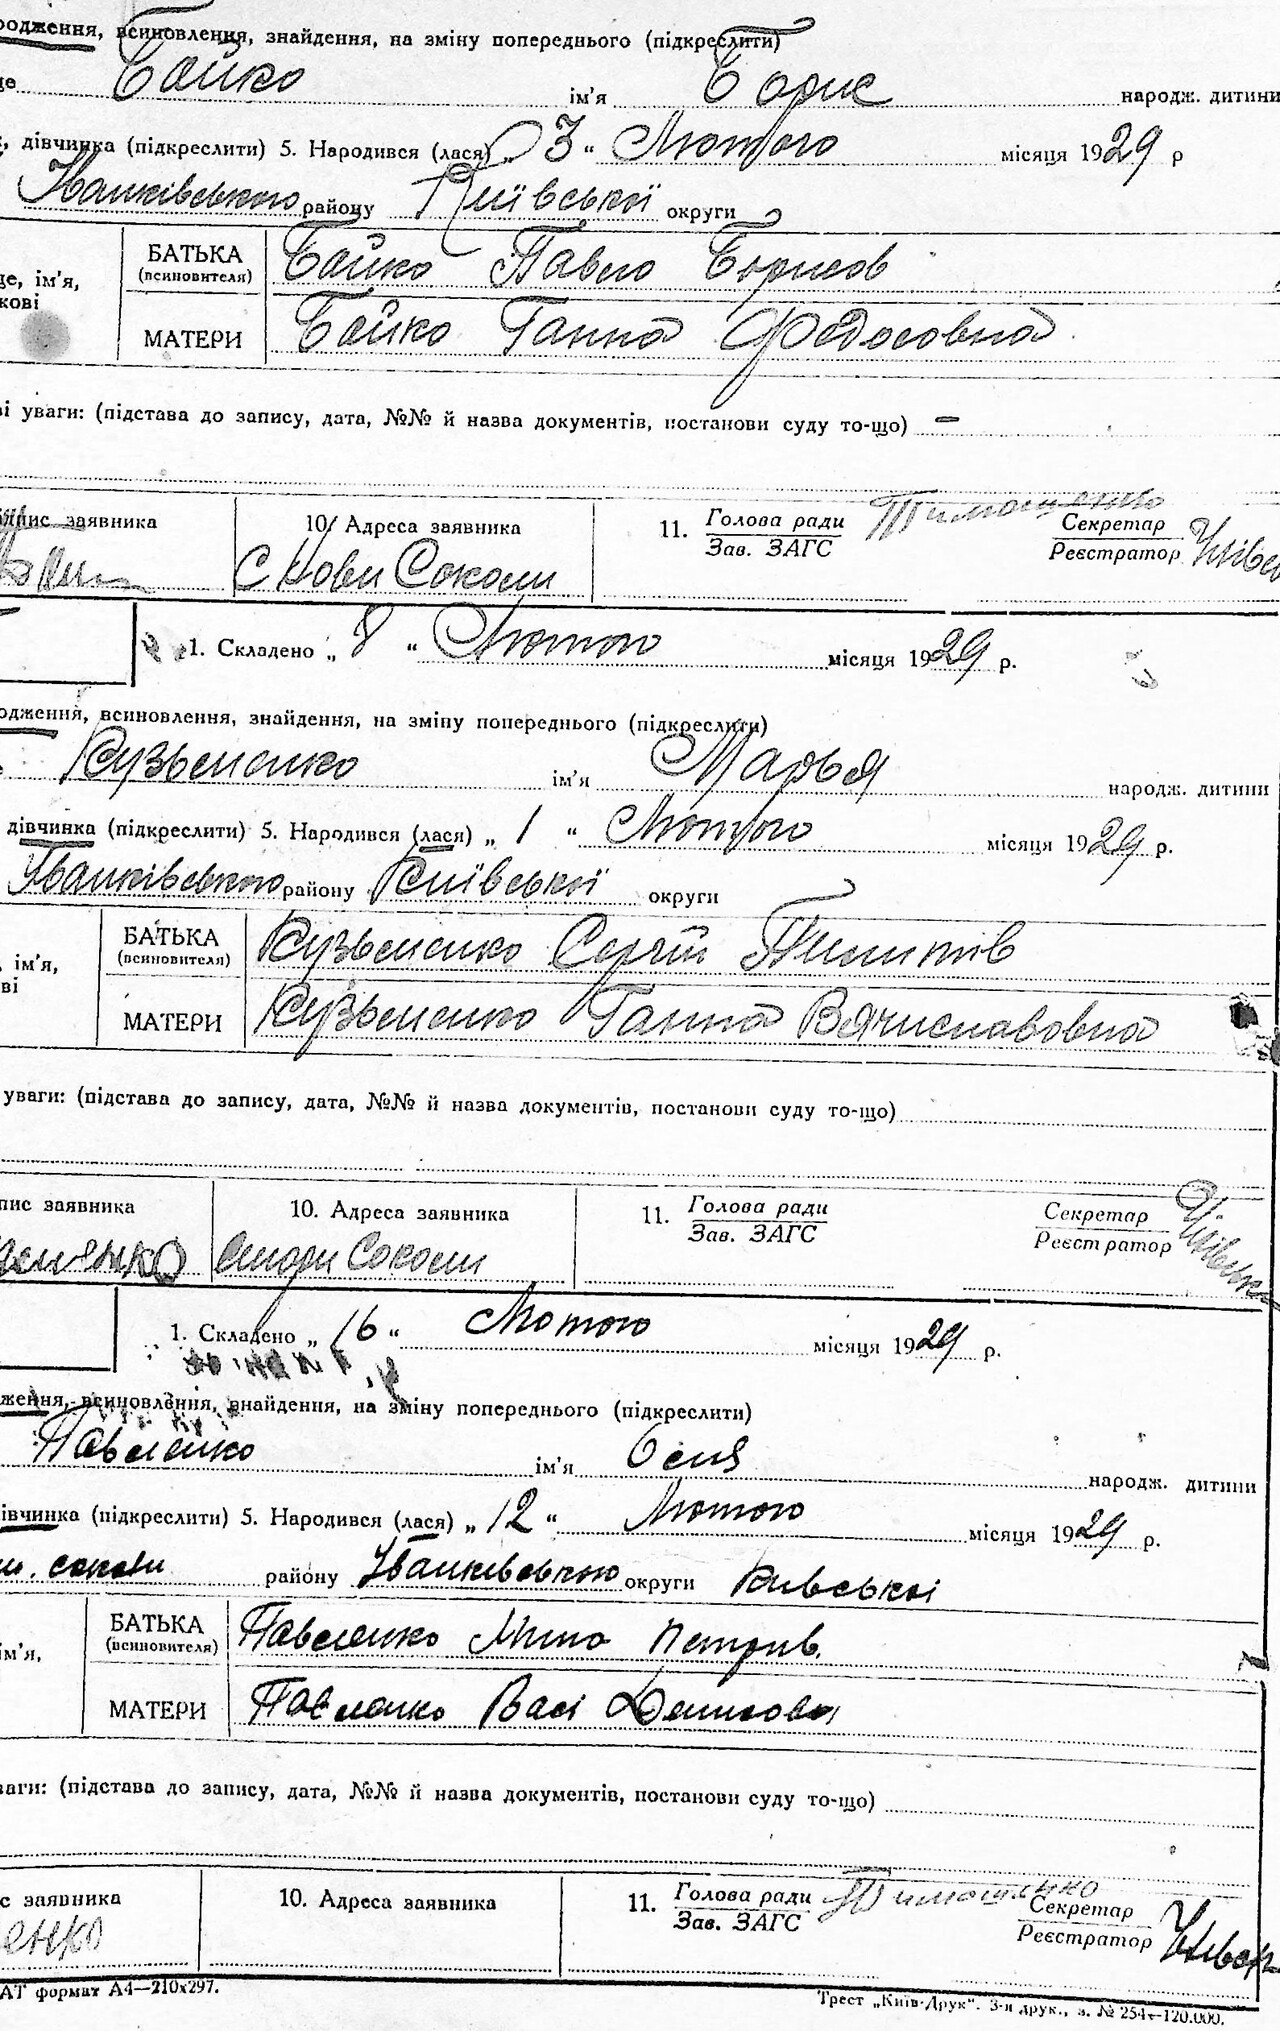 родження, всиновлення, знайдення, на зміну попереднього (підкреслити)
Бойко ім'я Борис народж. дитини
дівчинка (підкреслити) 5. Народився (лася) „ 3 " Лютого місяця 1929 р
Іванківського району Київської округи
БАТЬКА (всиновителя) Бойко Павло Борисов
це, ім'я,
кові
МАТЕРИ Бойко Ганна Федосовна
ві уваги: (підстава до запису, дата, №№ й назва документів, постанови суду то-що) –
підпис заявника 10 Адреса заявника 11. Голова ради Тимошенко Секретар
Зав. ЗАГС Реєстратор
С Нови Соколи
1. Складено „ 8 " Лютого місяця 1929 р.
одження, всиновлення, знайдення, на зміну попереднього (підкреслити)
Кузьменко ім'я Марья народж. дитини
дівчинка (підкреслити) 5. Народився (лася) „ 1 " Лютого місяця 1929 р.
Іванківського району Київської округи
БАТЬКА (всиновителя) Кузьменко Сергій Пилипів
ім'я,
ві
МАТЕРИ Кузьменко Ганна Вячиславовна
уваги: (підстава до запису, дата, №№ й назва документів, постанови суду то-що)
пис заявника 10. Адреса заявника 11. Голова ради Секретар
Зав. ЗАГС Реєстратор
Стари Соколи
1. Складено „ 16 " Лютого місяця 1929 р.
ження, всиновлення, знайдення, на зміну попереднього (підкреслити)
Павленко ім'я Оля народж. дитини
івчинка (підкреслити) 5. Народився (лася) „ 12 " Лютого місяця 1929 р.
соколи району Іванківського округи Киівської
БАТЬКА (всиновителя) Павленко Мина Петрив.
ім'я,
МАТЕРИ Павленко Васі Денисова
ваги: (підстава до запису, дата, №№ й назва документів, постанови суду то-що)
с заявника 10. Адреса заявника 11. Голова ради Тимошенко Секретар
Зав. ЗАГС Реєстратор
енко
АТ формат А4—210х297.
Трест „Київ-Друк". 3-я друк., з. № 254—120.000.